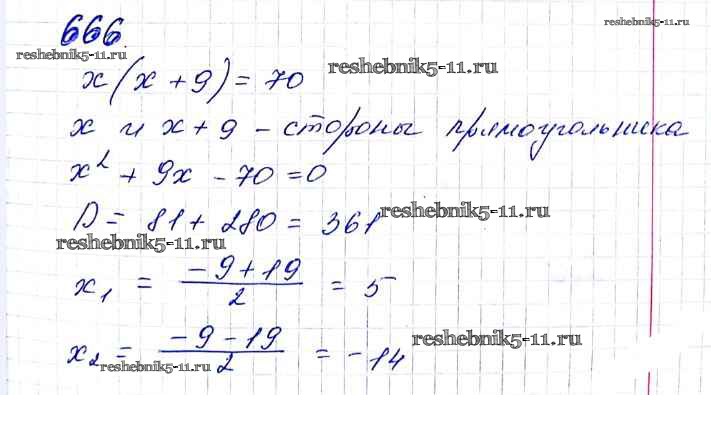 666.
reshebnik5-11.ru
reshebnik5-11.ru
x(x+9)=70
reshebnik5-11.ru
x и x+9 - стороны прямоугольника
x² + 9x - 70 = 0
D = 81 + 280 = 361
reshebnik5-11.ru
reshebnik5-11.ru
x₁ = (-9+19)/2 = 5
x₂ = (-9-19)/2 = -14
reshebnik5-11.ru
reshebnik5-11.ru